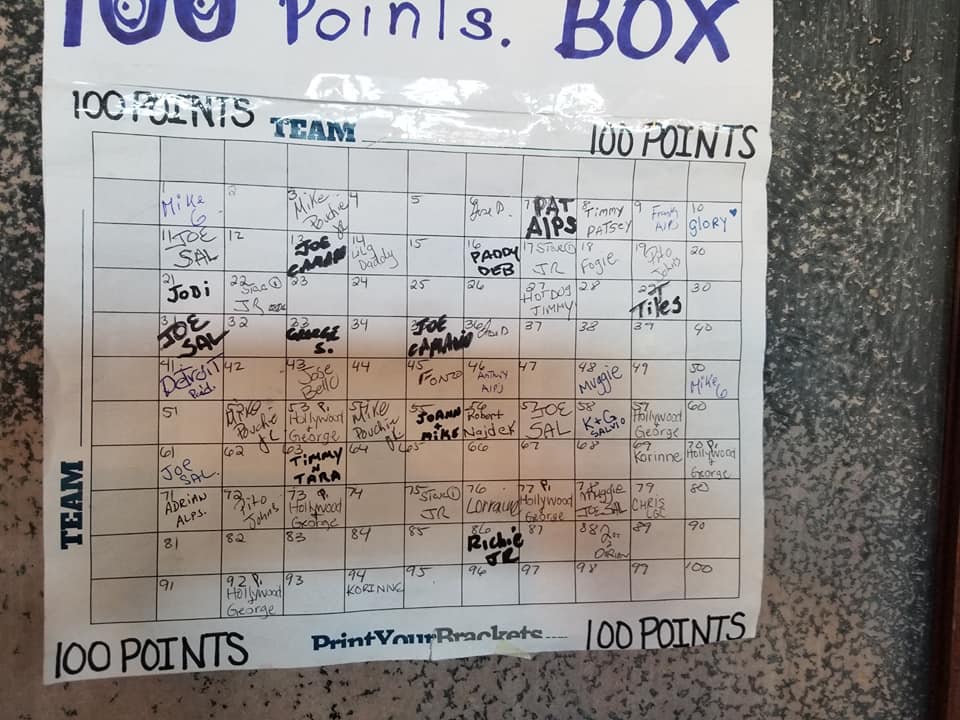 100 Points. BOX
100 POINTS TEAM 100 POINTS
1 Mike G 2 3 Mike Pouchie Jr 4 5 6 Joe D. 7 PAT AIPS 8 Timmy PATSEY 9 Frank AIPS 10 glory
11 JOE SAL 12 13 JOE 14 Lilg Daddy 15 16 PADDY DEB 17 Steve JR 18 Fogie 19 Pito Johns 20
21 JoDi 22 Steve JR 23 24 25 26 27 HOTDOG JIMMY 28 29 T Tiles 30
31 JOE SAL 32 33 GEORGE S. 34 35 JOE 36 Joe D 37 38 39 40
41 DetroiT Paid. 42 43 Jose Bello 44 45 FONZO 46 Anthony AIPS 47 48 Muggie 49 50 Mike G
51 52 Mike Pouchie Jr 53 P. Hollywood + George 54 Mike Pouchie Jr 55 JOANN + MIKE 56 Robert Najdek 57 JOE SAL 58 K+G SALVIO 59 Hollywood + George 60
61 Joe SAL. 62 63 TIMMY N TARA 64 65 66 67 68 69 Korinne 70 P. Hollywood + George
71 ADRIAN ALPS. 72 Pito Johns 73 P. Hollywood + George 74 75 Steve JR 76 Lorraine 77 P. Hollywood + George 78 Muggie JOE SAL 79 CHRIS 80
81 82 83 84 85 86 Richie JR 87 88 89 90
91 92 P. Hollywood + George 93 94 KORINNE 95 96 97 98 99 100
TEAM
100 POINTS PrintYourBrackets 100 POINTS